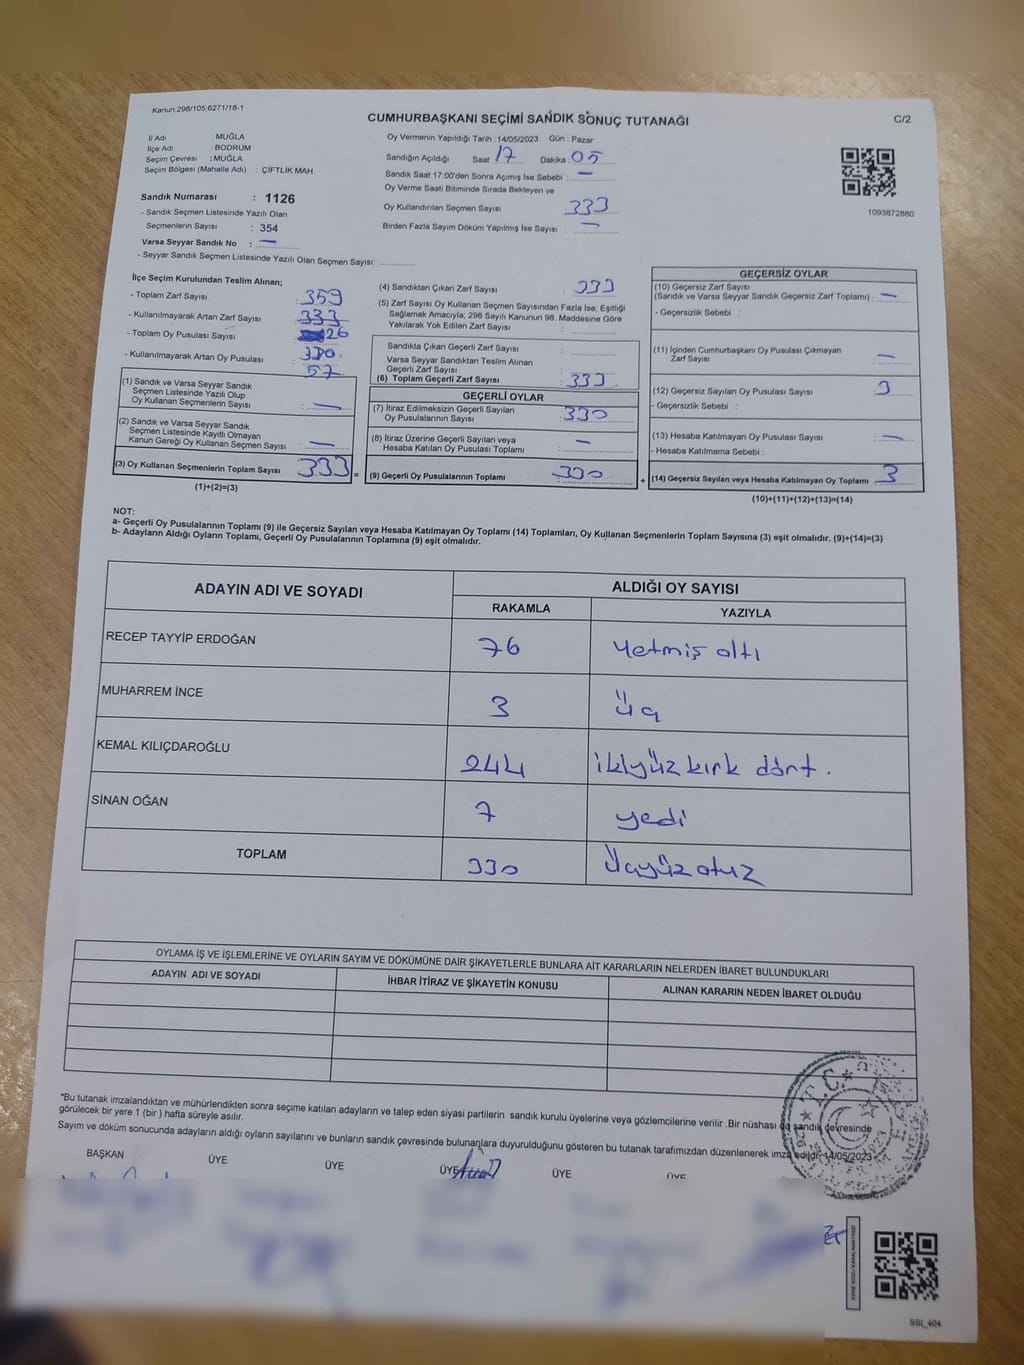 Kanun:298/105,6271/18-1
CUMHURBAŞKANI SEÇİMİ SANDIK SONUÇ TUTANAĞI
C/2
İl Adı : MUĞLA
İlçe Adı : BODRUM
Seçim Çevresi : MUĞLA
Seçim Bölgesi (Mahalle Adı) : ÇİFTLİK MAH.
Sandık Numarası : 1126
- Sandık Seçmen Listesinde Yazılı Olan
Seçmenlerin Sayısı : 354
Varsa Seyyar Sandık No : —
- Seyyar Sandık Seçmen Listesinde Yazılı Olan Seçmen Sayısı:
Oy Vermenin Yapıldığı Tarih : 14/05/2023 Gün : Pazar
Sandığın Açıldığı Saat 17 Dakika : 05
Sandık Saat 17:00'den Sonra Açımış İse Sebebi : —
Oy Verme Saati Bitiminde Sırada Bekleyen ve
Oy Kullandırılan Seçmen Sayısı : 333
Birden Fazla Sayım Döküm Yapılmış İse Sayısı : —
1093872880
İlçe Seçim Kurulundan Teslim Alınan;
- Toplam Zarf Sayısı : 359
- Kullanılmayarak Artan Zarf Sayısı : 333
26
- Toplam Oy Pusulası Sayısı :
- Kullanılmayarak Artan Oy Pusulası : 380.
57
(1) Sandık ve Varsa Seyyar Sandık
Seçmen Listesinde Yazılı Olup
Oy Kullanan Seçmenlerin Sayısı : —
(2) Sandık ve Varsa Seyyar Sandık
Seçmen Listesinde Kayıtlı Olmayan
Kanun Gereği Oy Kullanan Seçmen Sayısı : —
(3) Oy Kullanan Seçmenlerin Toplam Sayısı 333 =
(1)+(2)=(3)
(4) Sandıktan Çıkan Zarf Sayısı : 333
(5) Zarf Sayısı Oy Kullanan Seçmen Sayısından Fazla İse, Eşitliği
Sağlamak Amacıyla; 298 Sayılı Kanunun 98. Maddesine Göre
Yakılarak Yok Edilen Zarf Sayısı :
Sandıkta Çıkan Geçerli Zarf Sayısı :
Varsa Seyyar Sandıktan Teslim Alınan
Geçerli Zarf Sayısı :
(6) Toplam Geçerli Zarf Sayısı : 333
GEÇERLİ OYLAR
(7) İtiraz Edilmeksizin Geçerli Sayılan
Oy Pusulalarının Sayısı : 330
(8) İtiraz Üzerine Geçerli Sayılan veya
Hesaba Katılan Oy Pusulası Toplamı : —
(9) Geçerli Oy Pusulalarının Toplamı 330 +
GEÇERSİZ OYLAR
(10) Geçersiz Zarf Sayısı
(Sandık ve Varsa Seyyar Sandık Geçersiz Zarf Toplamı) : —
- Geçersizlik Sebebi :
(11) İçinden Cumhurbaşkanı Oy Pusulası Çıkmayan
Zarf Sayısı : —
(12) Geçersiz Sayılan Oy Pusulası Sayısı : 3
- Geçersizlik Sebebi :
(13) Hesaba Katılmayan Oy Pusulası Sayısı : —
- Hesaba Katılmama Sebebi :
(14) Geçersiz Sayılan veya Hesaba Katılmayan Oy Toplamı 3
(10)+(11)+(12)+(13)=(14)
NOT:
a- Geçerli Oy Pusulalarının Toplamı (9) ile Geçersiz Sayılan veya Hesaba Katılmayan Oy Toplamı (14) Toplamları, Oy Kullanan Seçmenlerin Toplam Sayısına (3) eşit olmalıdır. (9)+(14)=(3)
b- Adayların Aldığı Oyların Toplamı, Geçerli Oy Pusulalarının Toplamına (9) eşit olmalıdır.
ADAYIN ADI VE SOYADI
ALDIĞI OY SAYISI
RAKAMLA YAZIYLA
RECEP TAYYİP ERDOĞAN 76 Yetmiş altı
MUHARREM İNCE 3 Üç
KEMAL KILIÇDAROĞLU 244 ikiyüz kırk dört.
SİNAN OĞAN 7 yedi
TOPLAM 330 Üçyüz otuz
OYLAMA İŞ VE İŞLEMLERİNE VE OYLARIN SAYIM VE DÖKÜMÜNE DAİR ŞİKAYETLERLE BUNLARA AİT KARARLARIN NELERDEN İBARET BULUNDUKLARI
ADAYIN ADI VE SOYADI İHBAR İTİRAZ VE ŞİKAYETİN KONUSU ALINAN KARARIN NEDEN İBARET OLDUĞU
*Bu tutanak imzalandıktan ve mühürlendikten sonra seçime katılan adayların ve talep eden siyasi partilerin sandık kurulu üyelerine veya gözlemcilerine verilir .Bir nüshası da sandık çevresinde
görülecek bir yere 1 (bir ) hafta süreyle asılır.
Sayım ve döküm sonucunda adayların aldığı oyların sayılarını ve bunların sandık çevresinde bulunanlara duyurulduğunu gösteren bu tutanak tarafımızdan düzenlenerek imza edildi. 14/05/2023
BAŞKAN ÜYE ÜYE ÜYE ÜYE ÜYE
T.C.
SSI_404